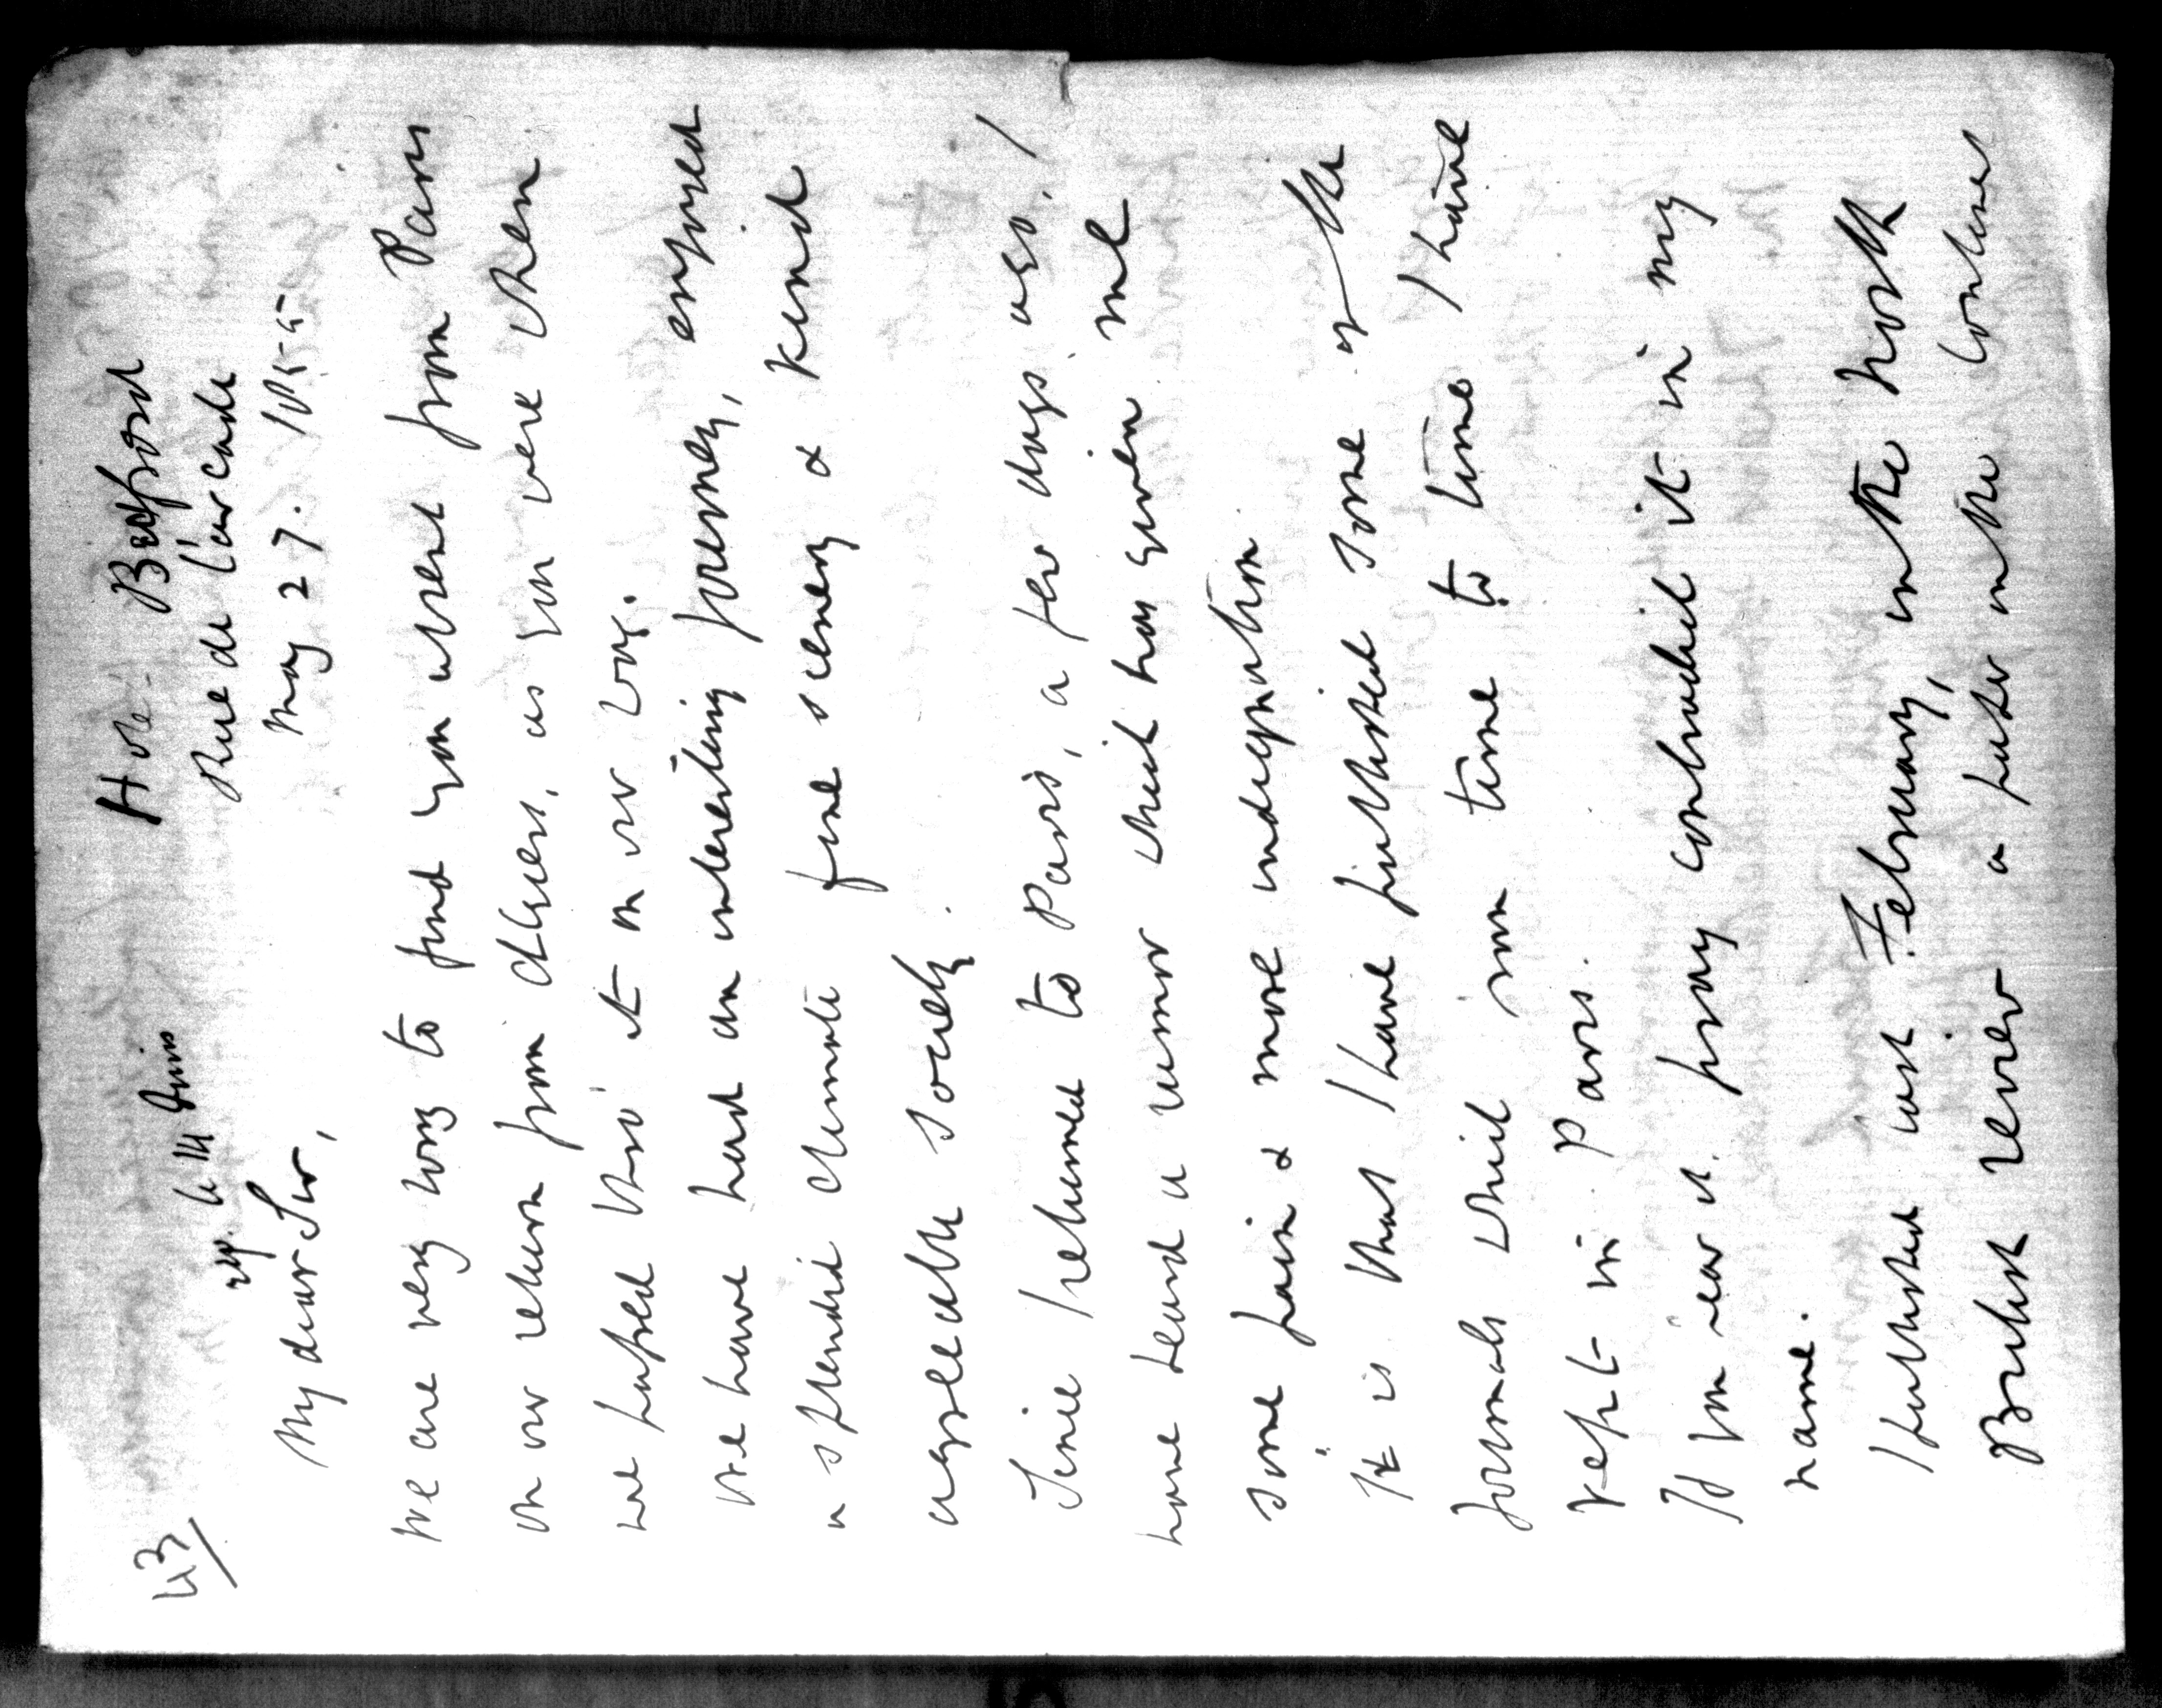 43/
Hot. Bedford
Rue de l'arcade
May 27. 1855
rép. le 14 Juin
My dear Sir,
We are very sorry to find you absent from Paris
on our return from Algiers, as you were when
we passed thro' it on our way.
We have had an interesting journey, enjoyed
a splendid climate fine scenery & kind
agreeable society.
Since I returned to Paris, a few days ago, I
have heard a rumor which has given me
some pain & more indignation
It is that I have published some of the
journals which from time to time I have
kept in Paris.
If you hear it pray contradict it in my
name.
I published last February, in the North
British Review a paper in the